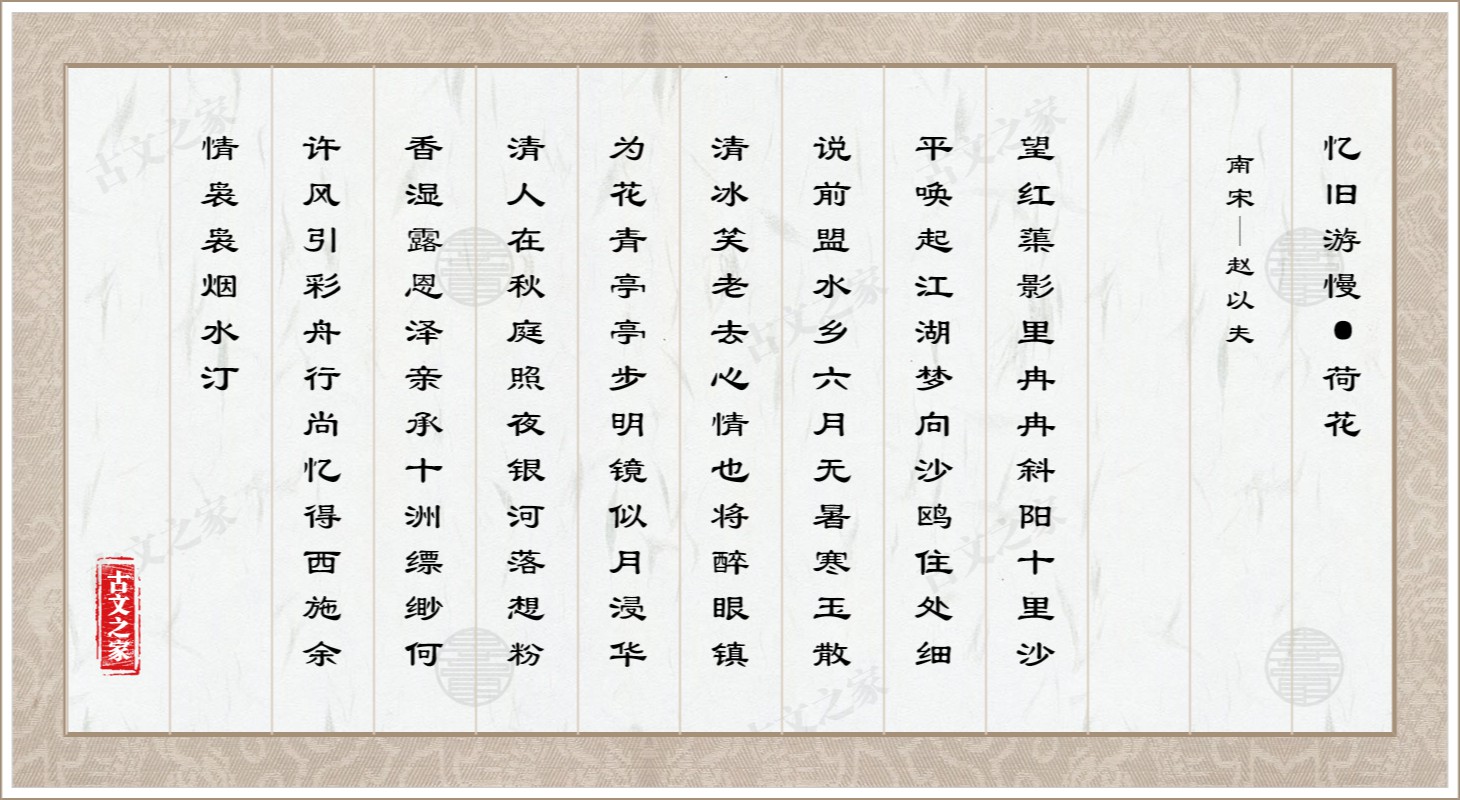 忆旧游慢●荷花
南宋—赵以夫
望红蕖影里冉冉斜阳十里沙
平唤起江湖梦向沙鸥住处细
说前盟水乡六月无暑寒玉散
清冰笑老去心情也将醉眼镇
为花青亭亭步明镜似月浸华
清人在秋庭照夜银河落想粉
香湿露恩泽亲承十洲缥缈何
许风引彩舟行尚忆得西施余
情袅袅烟水汀
古文之家
古文之家
古文之家
古文之家
古文之家
古文之家
古文之家